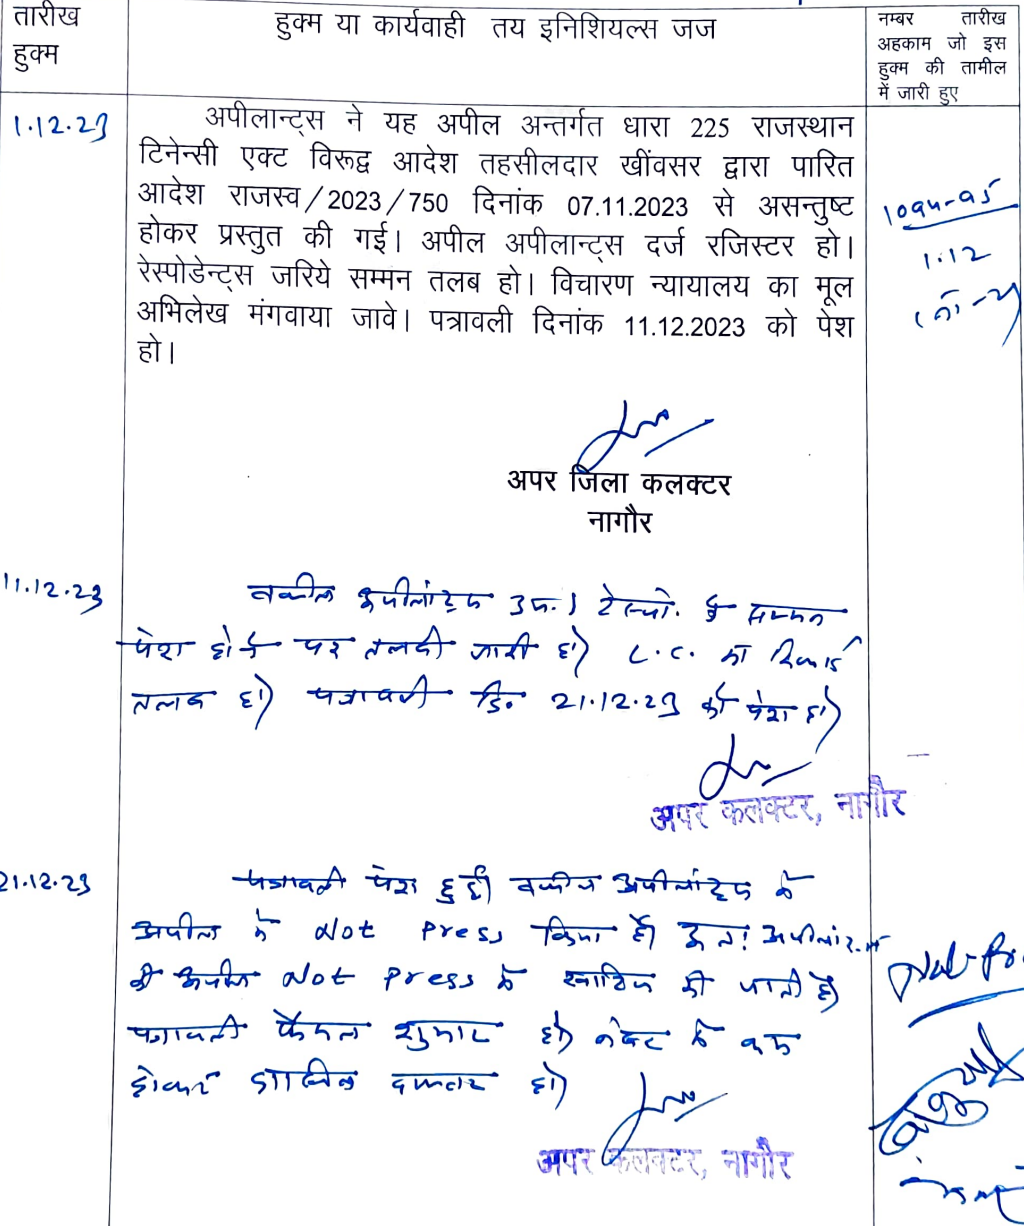 तारीख
हुक्म
हुक्म या कार्यवाही तय इनिशियल्स जज
नम्बर तारीख
अहकाम जो इस
हुक्म की तामील
में जारी हुए
1.12.23
अपीलान्ट्स ने यह अपील अन्तर्गत धारा 225 राजस्थान
टिनेन्सी एक्ट विरूद्व आदेश तहसीलदार खींवसर द्वारा पारित
आदेश राजस्व/2023/750 दिनांक 07.11.2023 से असन्तुष्ट
होकर प्रस्तुत की गई। अपील अपीलान्ट्स दर्ज रजिस्टर हो।
रेस्पोडेन्ट्स जरिये सम्मन तलब हो। विचारण न्यायालय का मूल
अभिलेख मंगवाया जावे। पत्रावली दिनांक 11.12.2023 को पेश
हो।
1.12
अपर जिला कलक्टर
नागौर
11.12.23
वकील अपीलांट्स उप.। रेस्पो. के सम्मन
पेश होने पर तलबी जारी हो। L.C. का रिकार्ड
तलब हो। पत्रावली दि. 21.12.23 को पेश हो।
अपर कलक्टर, नागौर
21.12.23
पत्रावली पेश हुई। वकील अपीलांट्स ने
अपील में Not Press किया है। अतः
की अपील Not Press में खारिज की जाती है।
पत्रावली फैसल शुमार हो। नम्बर से कम
होकर दाखिल दफ्तर हो।
अपर कलक्टर, नागौर